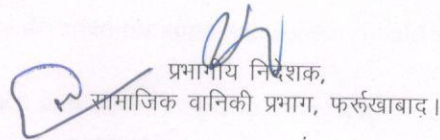 प्रभागीय निदेशक,
सामाजिक वानिकी प्रभाग, फर्रूखाबाद।